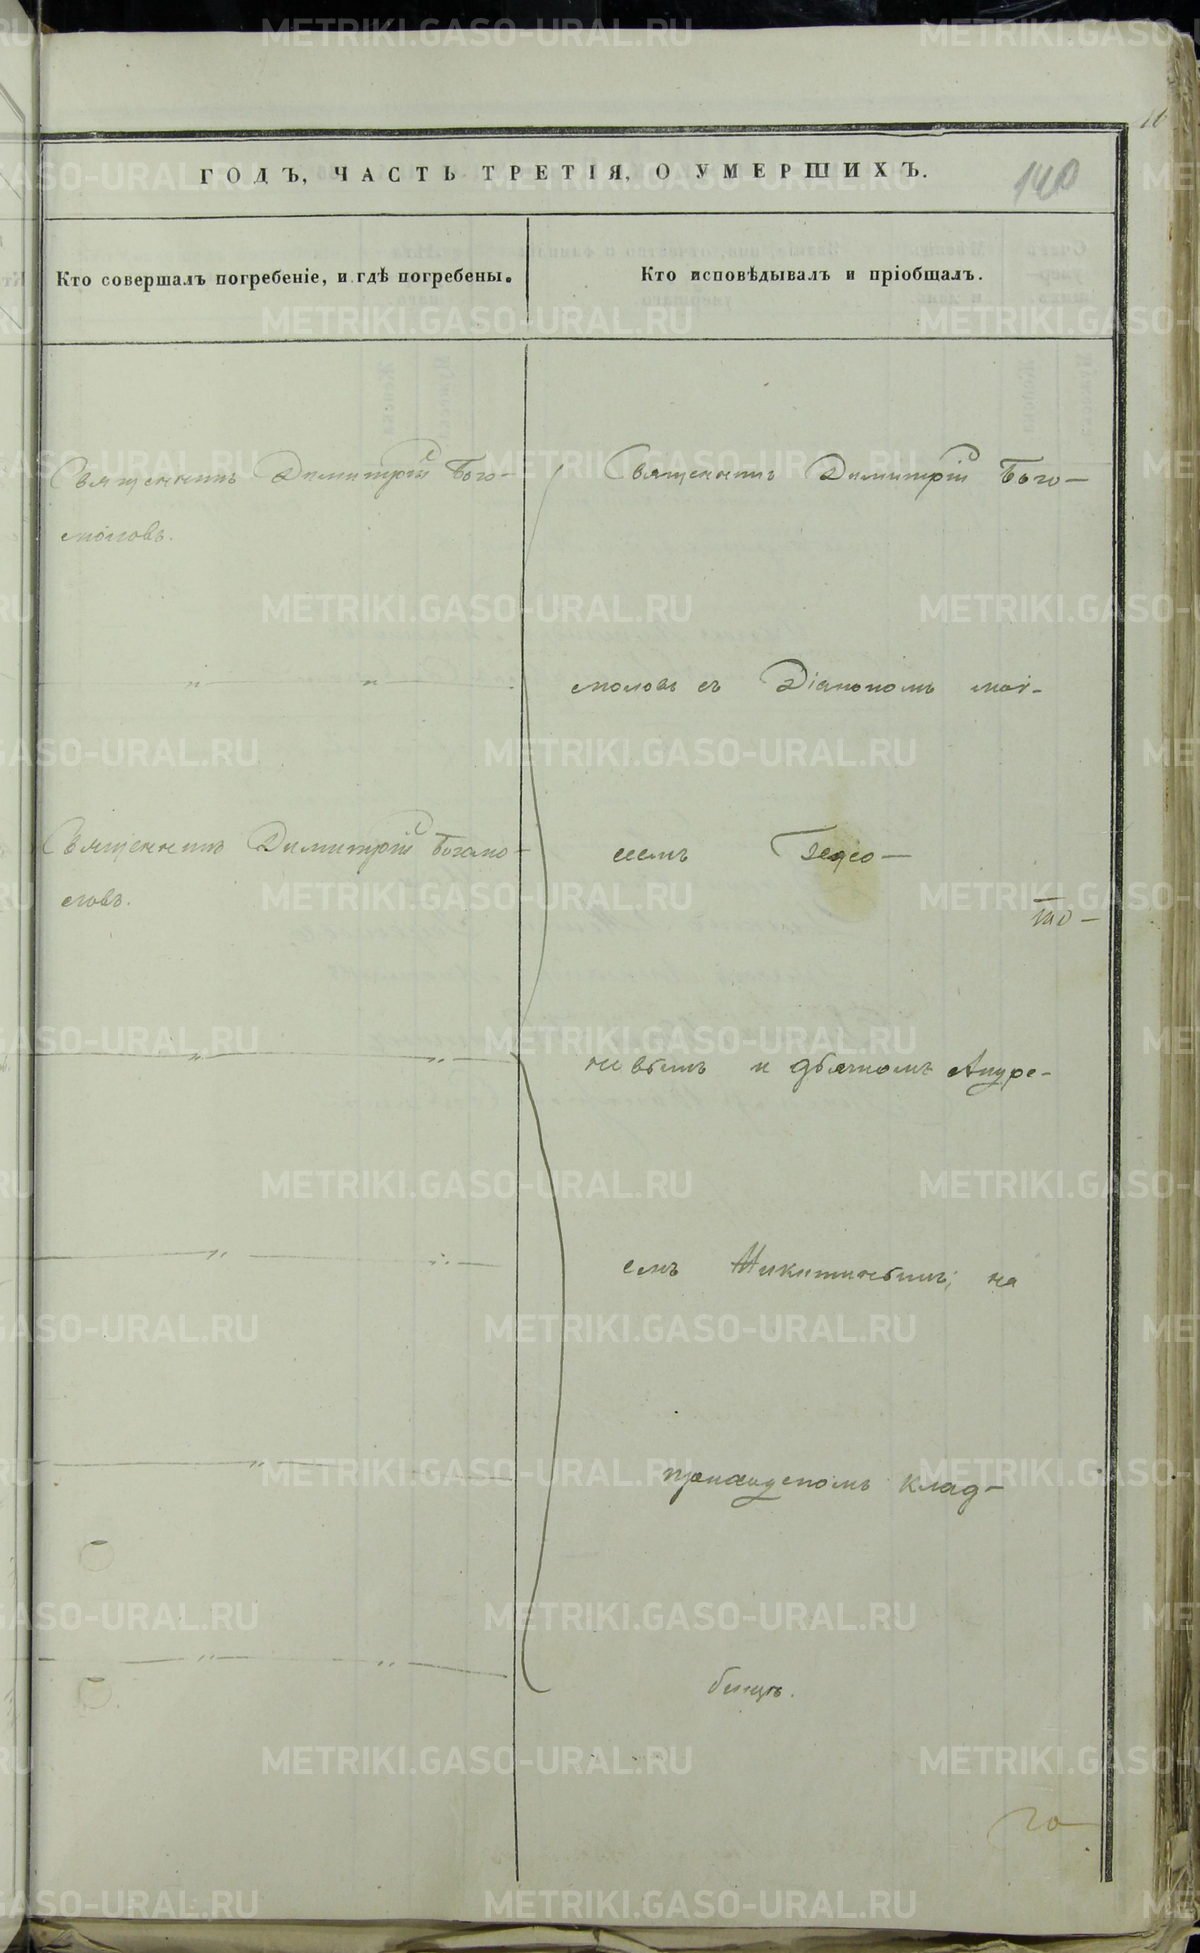 140
ГОДЪ, ЧАСТЬ ТРЕТІЯ, О УМЕРШИХЪ.
Кто совершалъ погребеніе, и гдѣ погребены.
Кто исповѣдывалъ и пріобщалъ.
Священникъ Димитрій Бого-
моловъ.
Священникъ Димитрій Богомо-
ловъ.
Священникъ Димитрій Бого-
моловъ съ Діакономъ
и дьячкомъ Андре-
емъ Никитинымъ; на
приходскомъ клад-
бищѣ.
METRIKI.GASO-URAL.RU